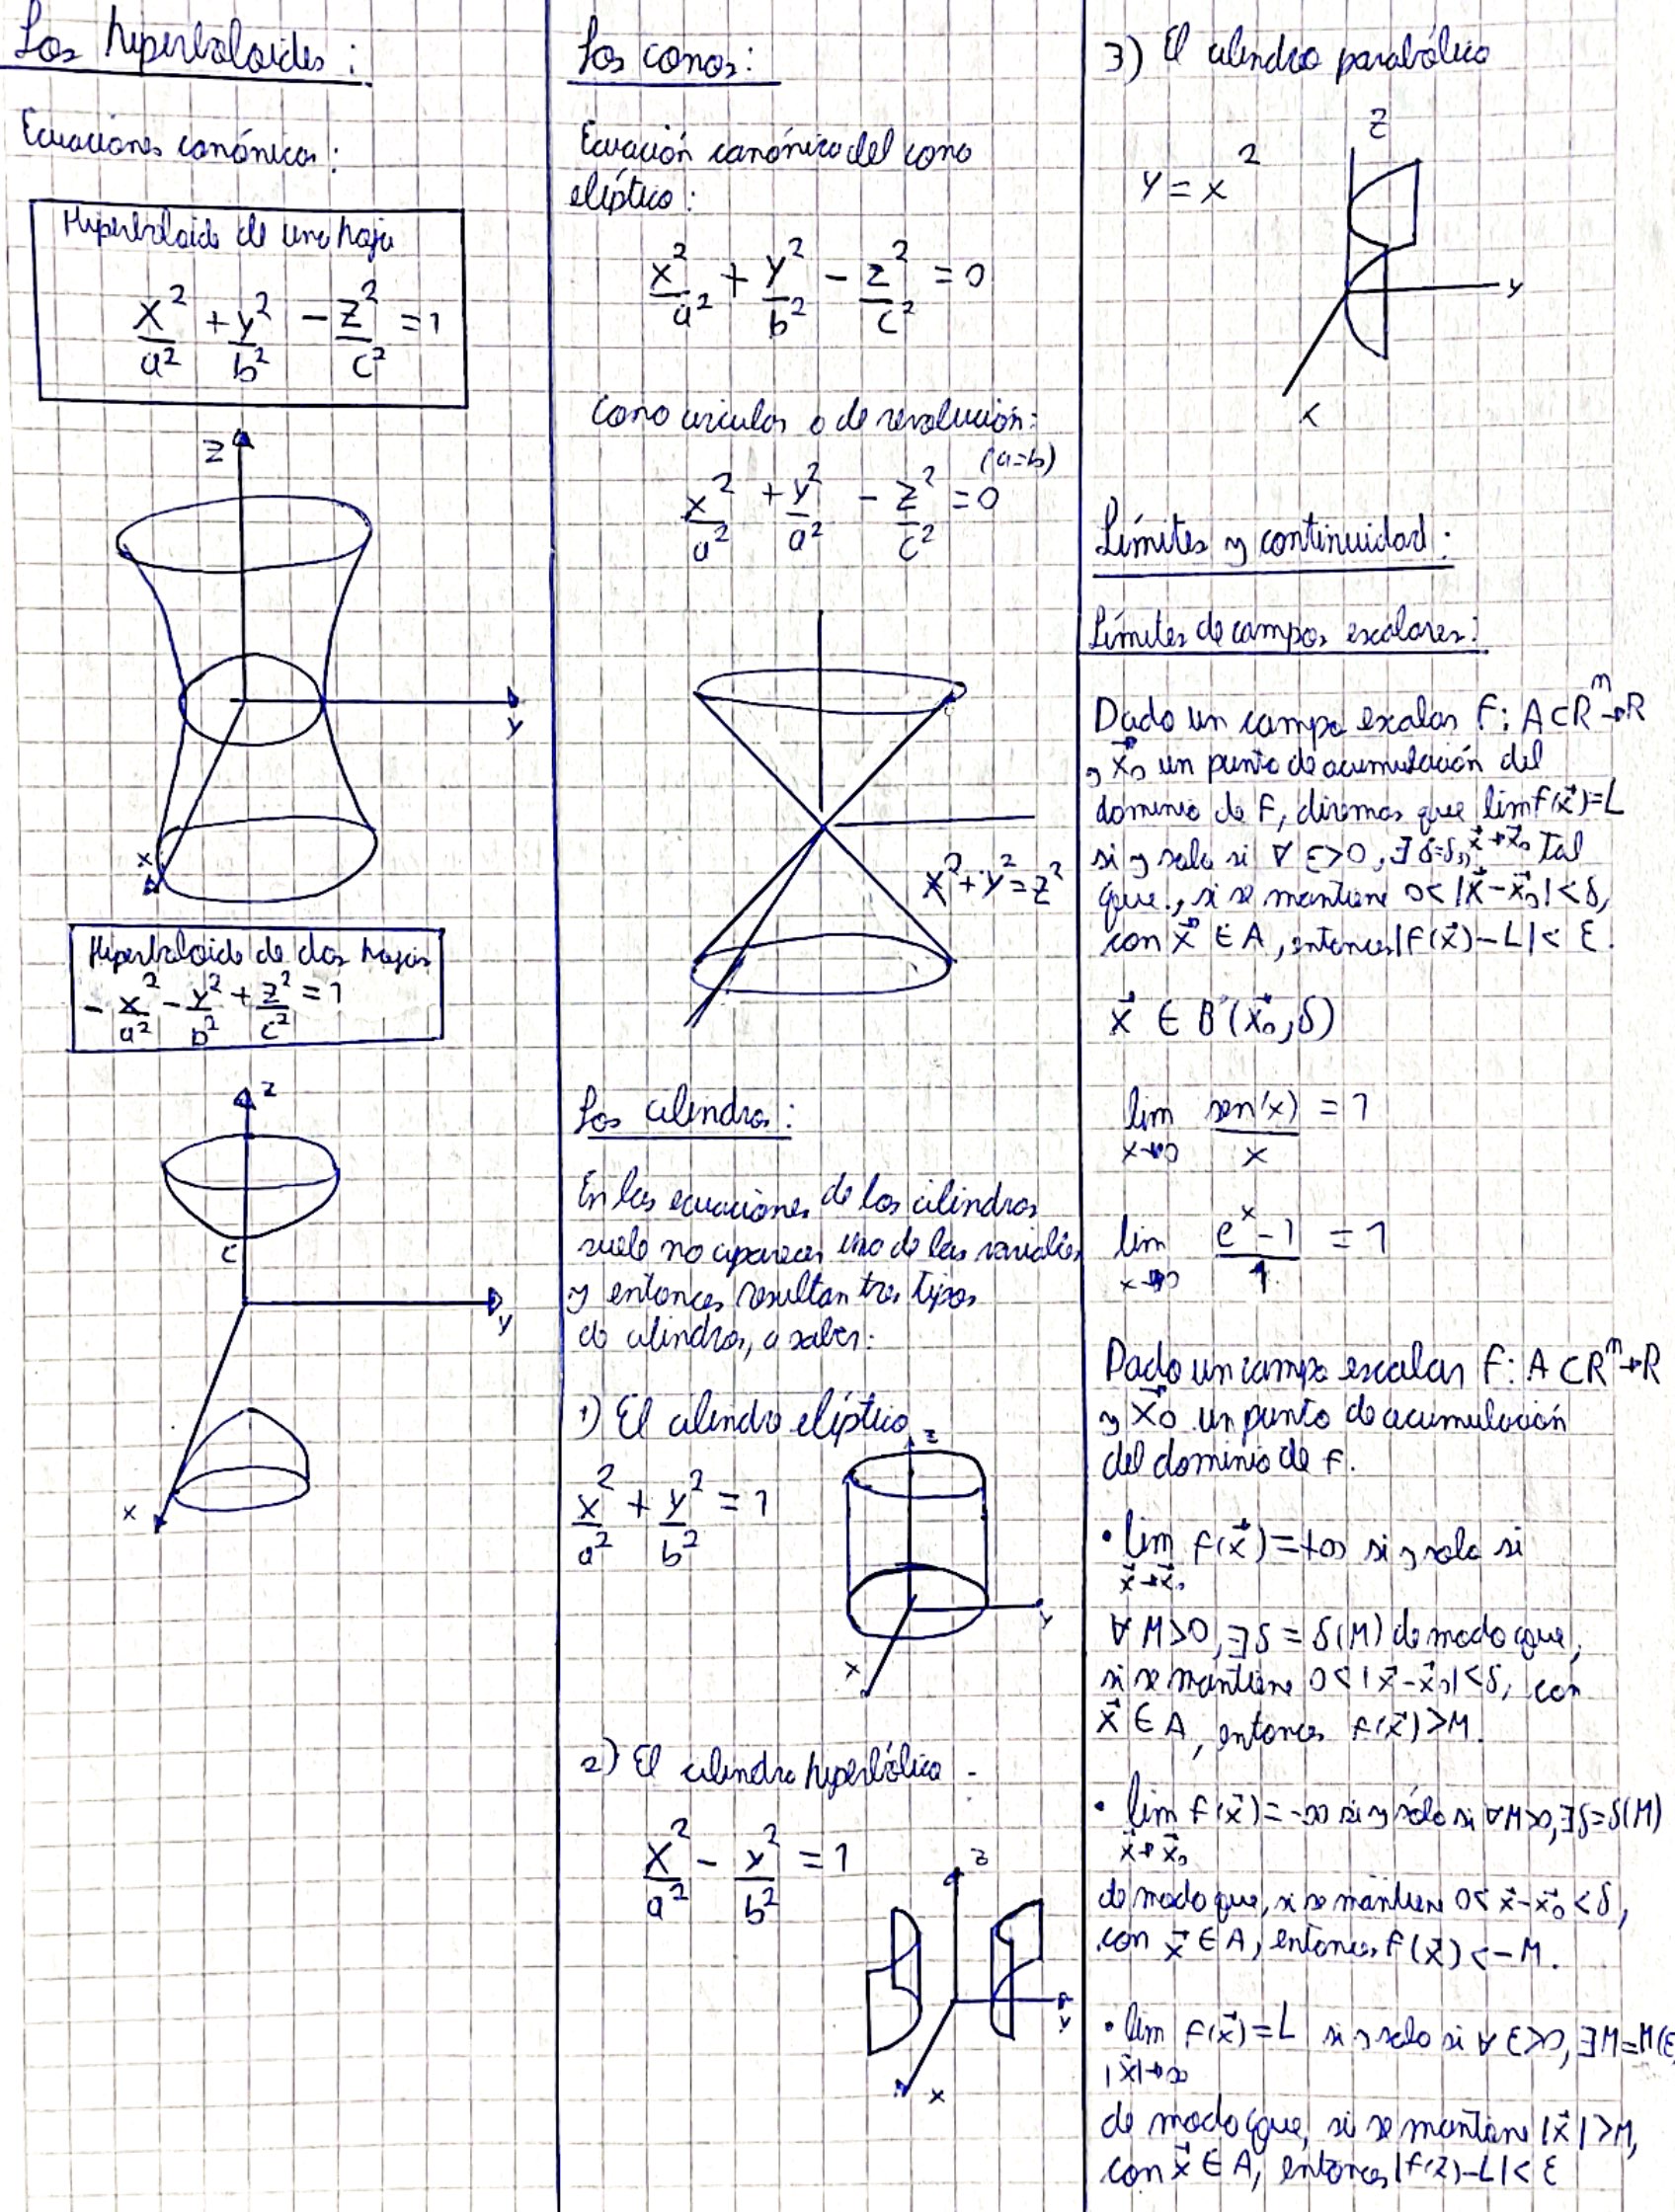 Los hiperboloides:
Ecuaciones canónicas:
Hiperboloide de una hoja
x²/a² + y²/b² - z²/c² = 1
z
y
x
Hiperboloide de dos hojas
- x²/a² - y²/b² + z²/c² = 1
z
c
y
x
Los conos:
Ecuación canónica del cono
elíptico:
x²/a² + y²/b² - z²/c² = 0
Cono circular o de revolución:
(a=b)
x²/a² + y²/a² - z²/c² = 0
x² + y² = z²
Los cilindros:
En las ecuaciones de los cilindros
suele no aparecer una de las variables
y entonces resultan tres tipos
de cilindros, a saber:
1) El cilindro elíptico
x²/a² + y²/b² = 1
z
y
x
2) El cilindro hiperbólico
x²/a² - y²/b² = 1
z
y
x
3) El cilindro parabólico
y = x²
z
y
x
Límites y continuidad:
Límites de campos escalares:
Dado un campo escalar F: A⊂Rⁿ→R
y x⃗₀ un punto de acumulación del
dominio de F, diremos que lim f(x⃗)=L
x⃗→x⃗₀
si y solo si ∀ ε>0, ∃ δ=δ Tal
que, si se mantiene 0<|x⃗-x⃗₀|<δ,
con x⃗ ∈ A, entonces |F(x⃗)-L|< ε.
x⃗ ∈ B'(x⃗₀,δ)
lim x→0 sen(x)/x = 1
lim x→0 (eˣ-1)/1 = 1
Dado un campo escalar F: A⊂Rⁿ→R
y x⃗₀ un punto de acumulación
del dominio de F.
• lim f(x⃗)=+∞ si y solo si
x⃗→x⃗₀
∀ M>0, ∃ δ = δ(M) de modo que,
si se mantiene 0<|x⃗-x⃗₀|<δ, con
x⃗ ∈ A, entonces f(x⃗)>M.
• lim f(x⃗)=-∞ si y sólo si ∀M>0, ∃δ=δ(M)
x⃗→x⃗₀
de modo que, si se mantiene 0< x⃗-x⃗₀ <δ,
con x⃗ ∈ A, entonces F(x⃗) < -M.
• lim f(x⃗)=L si y solo si ∀ ε>0, ∃M=M(ε
|x⃗|→∞
de modo que, si se mantiene |x⃗|>M,
con x⃗ ∈ A, entonces |f(x⃗)-L|< ε